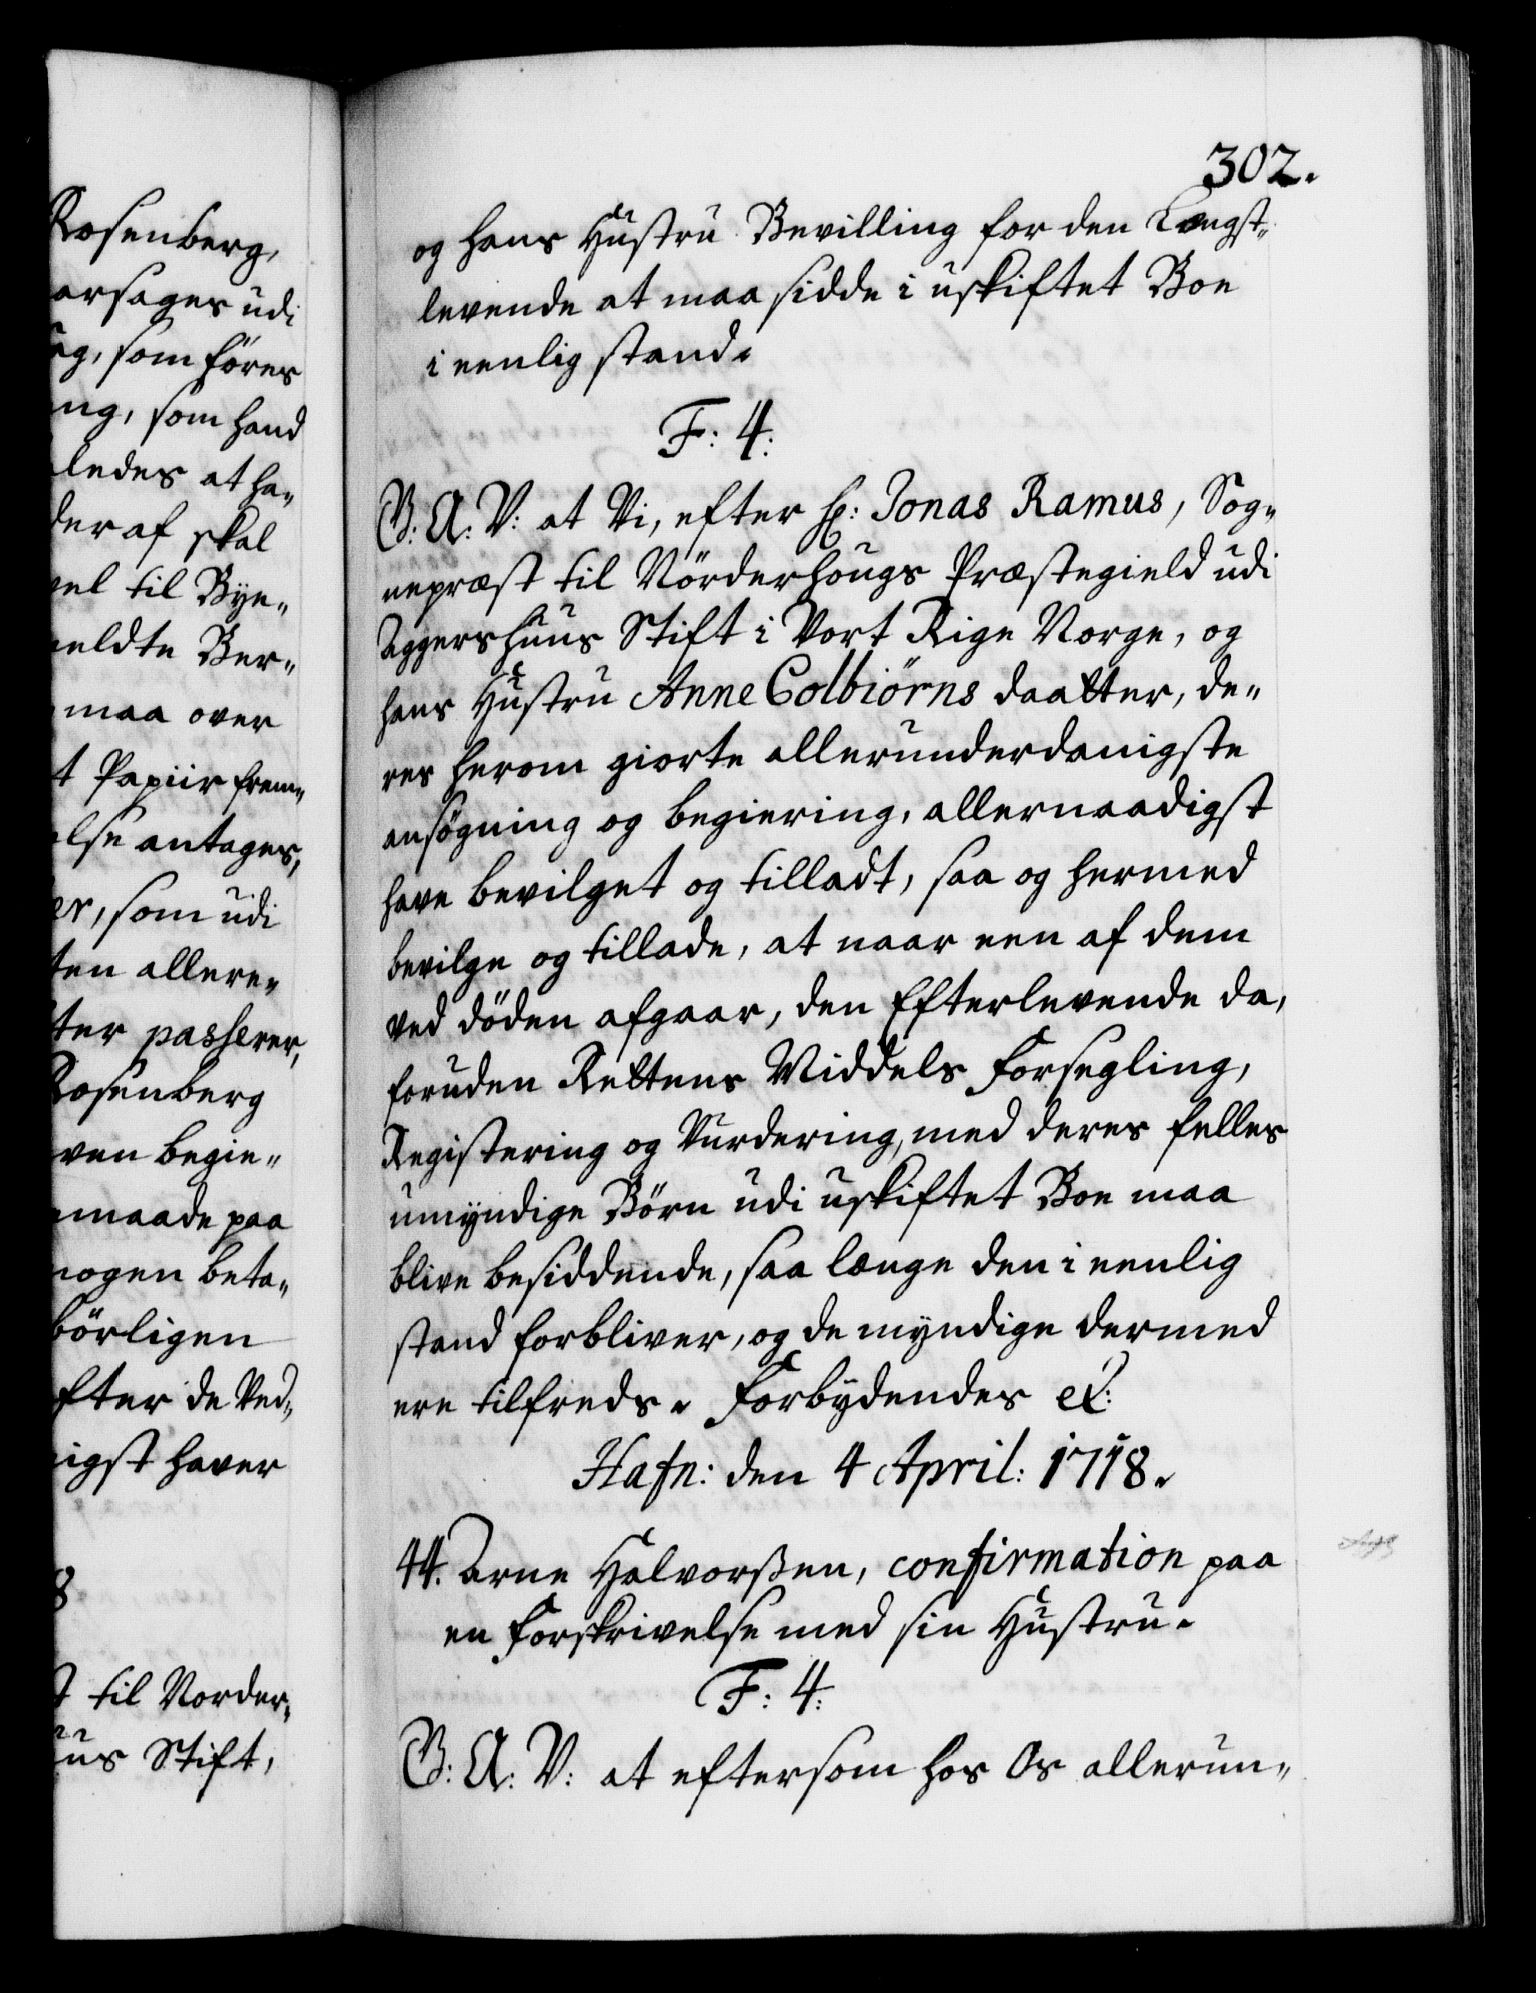 Rosenberg,
arsages udi
ng, som føres
ng, som hand
ledes at ha„
der af skal
vel til Bye„
meldte Ber„
maa over
t Papiir frem„
else antages,
er, som udi
ten allere„
ter passerer,
Rosenberg
ven begie„
maade paa
nogen beta„
børligen
efter de Ved„
nigst haver
8
t til Norder„
uus Stift,
302.
og hans Hustru Bevilling for den Længst„
levende at maa sidde i uskiftet Boe
i eenlig stand.
F: 4:
G: A: V: at Vi, efter Hr: Jonas Ramus, Sog„
nepræst til Nörderhougs Præstegield udi
Aggershuus Stift i Vort Rige Norge, og
hans Hustru Anne Colbiörns daatter, de„
res herom giorte allerunderdanigste
ansøgning og begiering, allernaadigst
have bevilget og tilladt, saa og hermed
bevilge og tillade, at naar een af dem
ved döden afgaar, den Efterlevende da,
foruden Rettens Middels Forsegling,
Registering og Vurdering, med deres felles
umyndige Börn udi uskiftet Boe maa
blive besiddende, saa længe den i eenlig
stand forbliver, og de myndige dermed
ere tilfreds. Forbydendes etc:
Hafn: den 4 April: 1718.
44. Arne Halvorßen, confirmation paa
en Forskrivelse med sin Hustru.
F: 4:
G: A: V: at eftersom hos Os allerun„